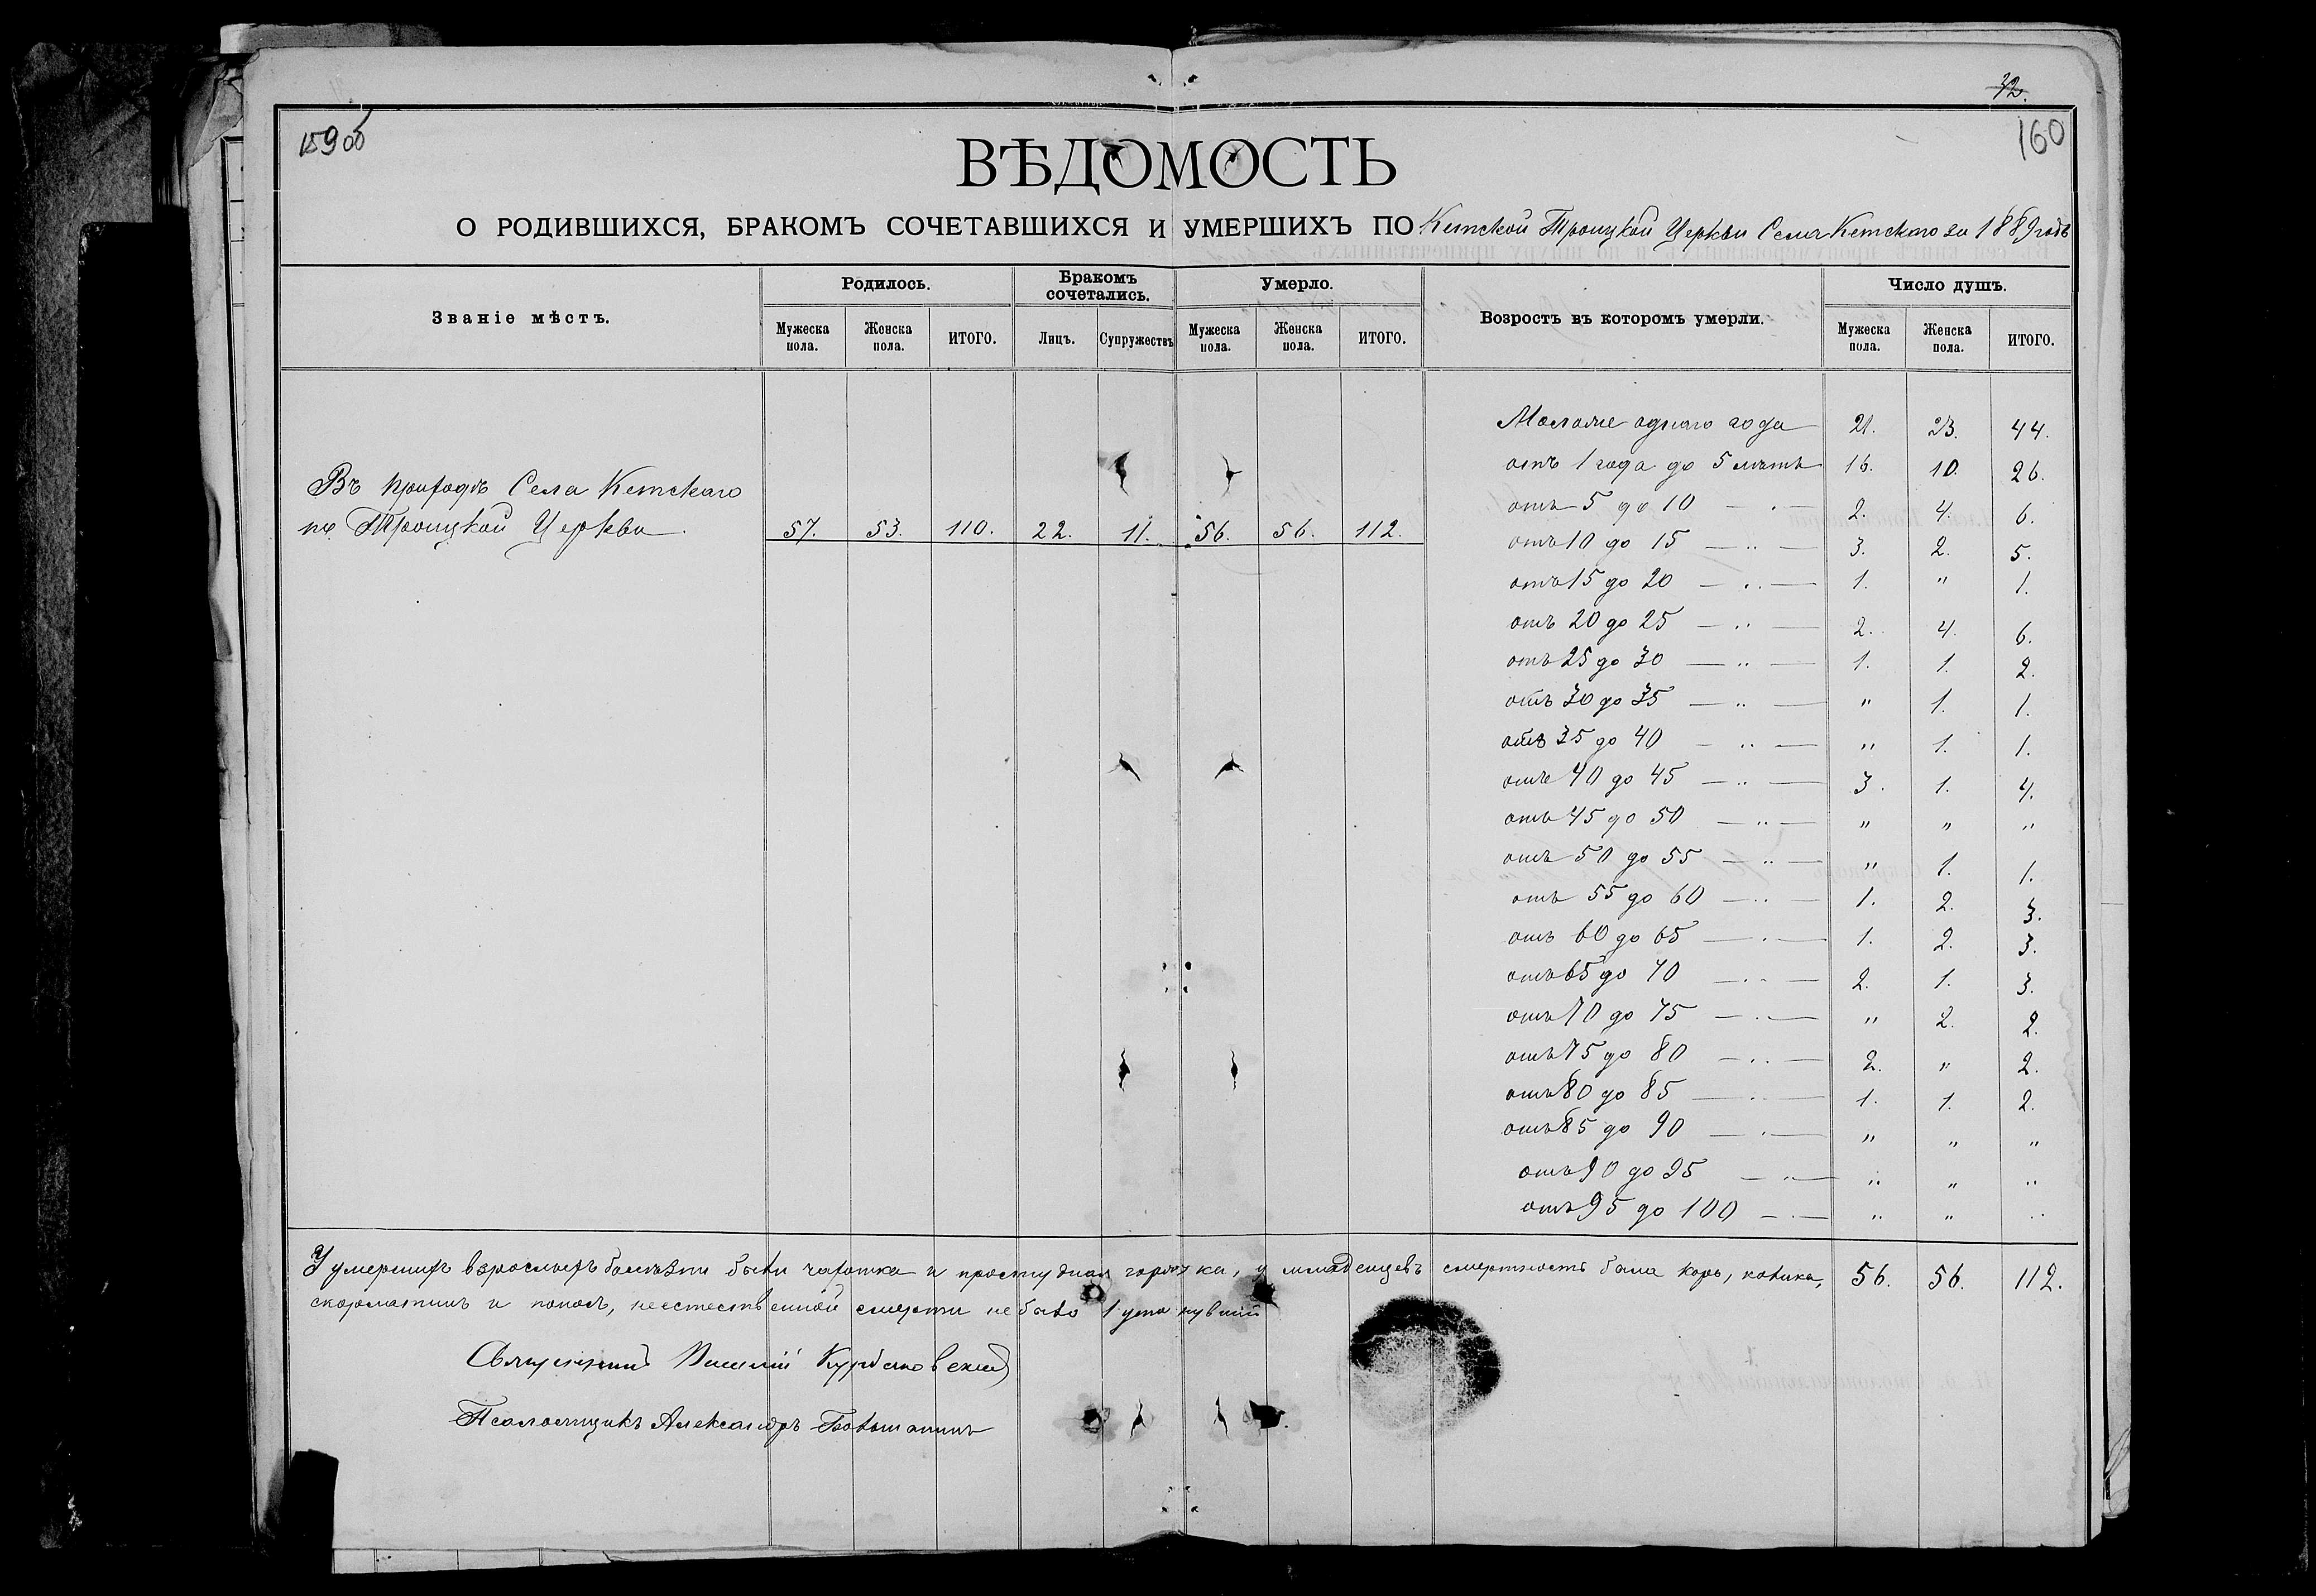 32.
160
ВѢДОМОСТЬ
О РОДИВШИХСЯ, БРАКОМЪ СОЧЕТАВШИХСЯ И УМЕРШИХЪ ПО Кетской Троицкой Церкви Села Кетскаго за 1889 годъ
Званіе мѣстъ. Родилось. Бракомъ сочетались. Умерло. Возростъ въ которомъ умерли. Число душъ.
Мужеска пола. Женска пола. ИТОГО. Лицъ. Супружествъ Мужеска пола. Женска пола. ИТОГО. Мужеска пола. Женска пола. ИТОГО.
Моложе одного года 21. 23. 44.
отъ 1 года до 5 лѣтъ 16. 10. 26.
Въ приходѣ Села Кетскаго
по Троицкой Церкви 57. 53. 110. 22. 11. 56. 56. 112.
отъ 5 до 10 — . — 2. 4. 6.
отъ 10 до 15 — .. — 3. 2. 5.
отъ 15 до 20 — .. — 1. " 1.
отъ 20 до 25 — .. — 2. 4. 6.
отъ 25 до 30 — .. — 1. 1. 2.
отъ 30 до 35 — .. — " 1. 1.
отъ 35 до 40 — .. — " 1. 1.
отъ 40 до 45 — .. — 3. 1. 4.
отъ 45 до 50 — .. — " " "
отъ 50 до 55 — .. — " 1. 1.
отъ 55 до 60 — .. — 1. 2. 3.
отъ 60 до 65 — . — 1. 2. 3.
отъ 65 до 70 — .. — 2. 1. 3.
отъ 70 до 75 — .. — " 2. 2.
отъ 75 до 80 — .. — 2. " 2.
отъ 80 до 85 — .. — 1. 1. 2.
отъ 85 до 90 — . — " " "
отъ 90 до 95 — .. — " " "
отъ 95 до 100 — . — " " "
У умершихъ взрослыхъ болѣзни были чахотка и простудная горячка, у младенцевъ смертность была корь, колика, 56. 56. 112.
скарлатинъ и поносъ, неестественной смерти не было 1 утонувшій
Священникъ Василій
Псаломщикъ Александръ